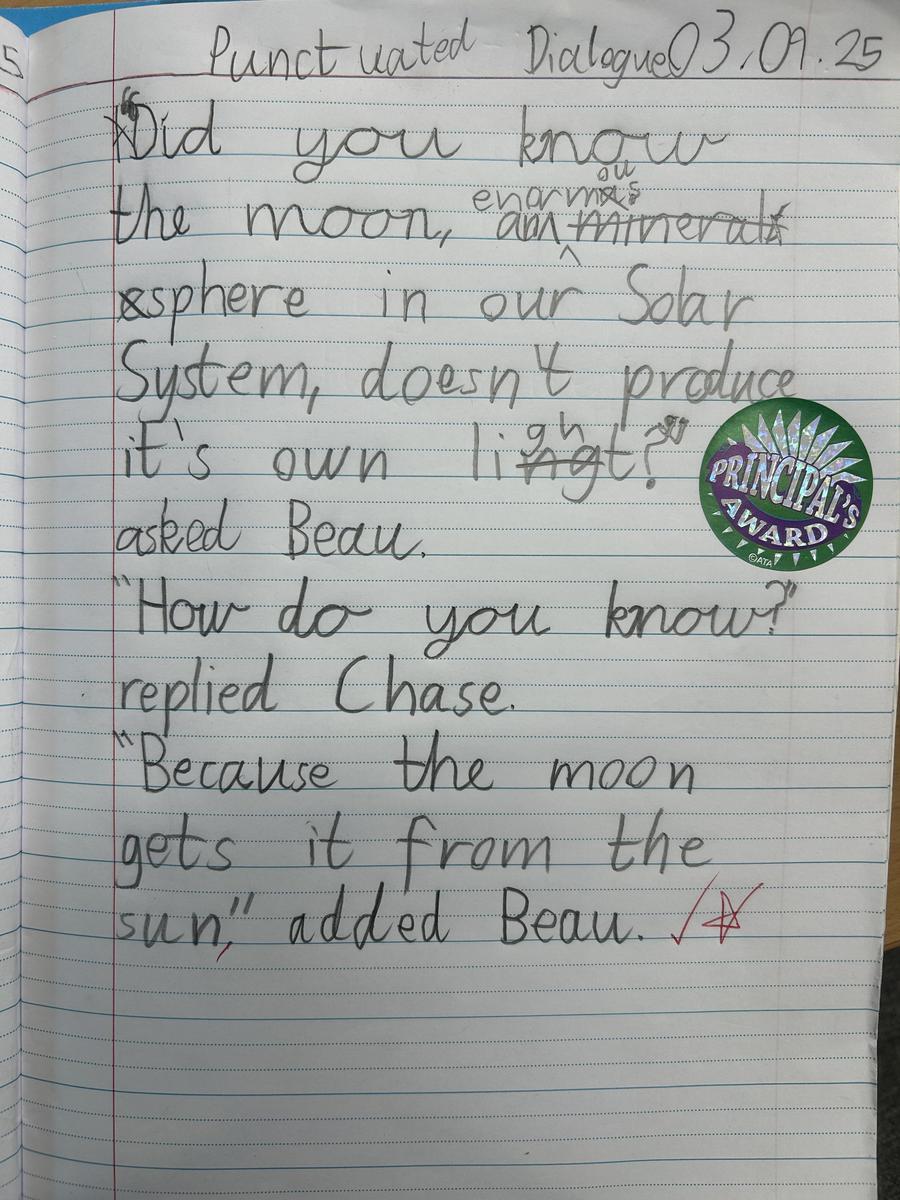 5
Punctuated Dialogue 03.09.25
"Did you know
the moon, an enormous
sphere in our Solar
System, doesn't produce
it's own light?"
PRINCIPAL'S
AWARD
©ATA
asked Beau.
"How do you know?"
replied Chase.
"Because the moon
gets it from the
sun," added Beau.